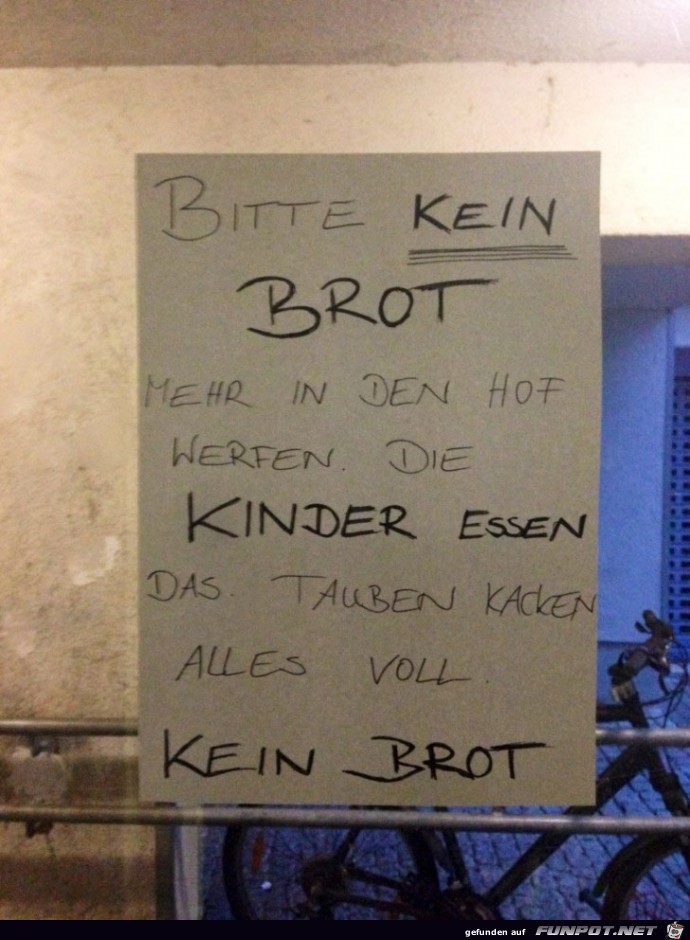 BITTE KEIN
BROT
MEHR IN DEN HOF
WERFEN. DIE
KINDER ESSEN
DAS. TAUBEN KACKEN
ALLES VOLL.
KEIN BROT
gefunden auf FUNPOT.NET